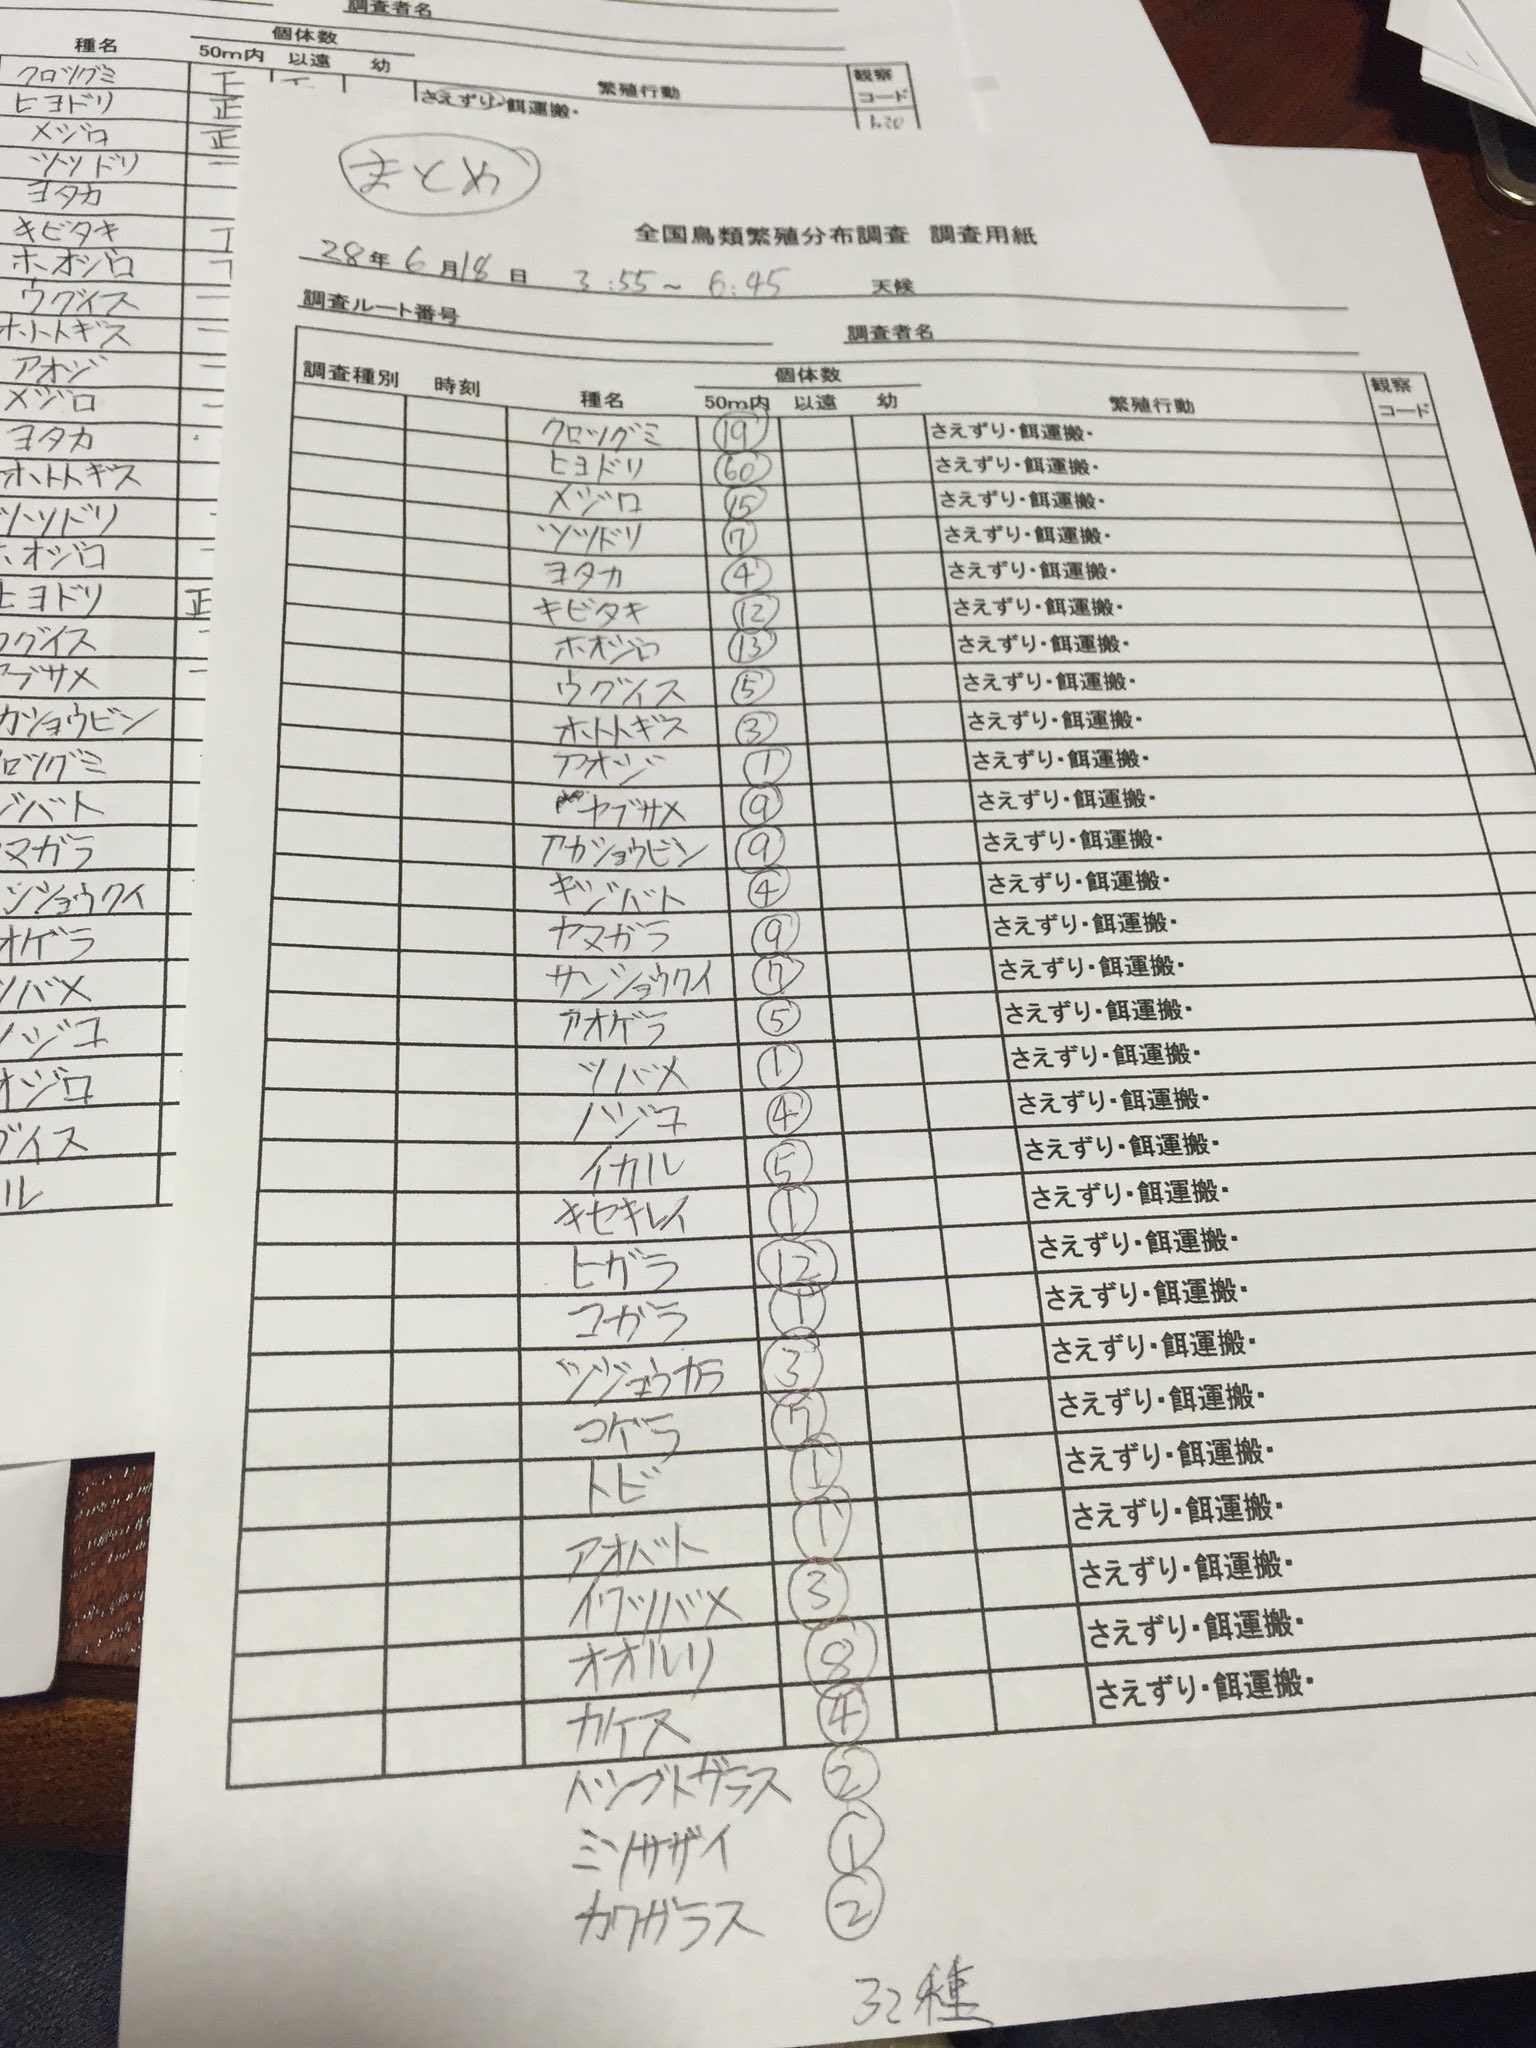 調査者名
種名 個体数
50m内 以遠 幼 繁殖行動 観察コード
クロツグミ 正 さえずり・餌運搬・
ヒヨドリ 正
メジロ 正
ツツドリ
ヨタカ
キビタキ
ホオジロ
ウグイス
ホトトギス
アオジ
メジロ
ヨタカ
ホトトギス
ツツドリ
ホオジロ
ヒヨドリ 正
ウグイス
ブサメ
カショウビン
ロツグミ
ジバト
マガラ
ンショウクイ
オゲラ
ツバメ
ノジコ
オジロ
グイス
ル
まとめ
全国鳥類繁殖分布調査 調査用紙
28年6月18日 3:55～6:45 天候
調査ルート番号 調査者名
調査種別 時刻 種名 個体数 繁殖行動 観察コード
50m内 以遠 幼
クロツグミ 19 さえずり・餌運搬・
ヒヨドリ 60 さえずり・餌運搬・
メジロ 45 さえずり・餌運搬・
ツツドリ 7 さえずり・餌運搬・
ヨタカ 4 さえずり・餌運搬・
キビタキ 12 さえずり・餌運搬・
ホオジロ 13 さえずり・餌運搬・
ウグイス 5 さえずり・餌運搬・
ホトトギス 3 さえずり・餌運搬・
アオジ 1 さえずり・餌運搬・
ヤブサメ 9 さえずり・餌運搬・
アカショウビン 9 さえずり・餌運搬・
キジバト 4 さえずり・餌運搬・
ヤマガラ 9 さえずり・餌運搬・
サンショウクイ 7 さえずり・餌運搬・
アオゲラ 5 さえずり・餌運搬・
ツバメ 1 さえずり・餌運搬・
ノジコ 4 さえずり・餌運搬・
イカル 5 さえずり・餌運搬・
キセキレイ 1 さえずり・餌運搬・
ヒガラ 12 さえずり・餌運搬・
コガラ 1 さえずり・餌運搬・
シジュウカラ 3 さえずり・餌運搬・
コゲラ 7 さえずり・餌運搬・
トビ 1 さえずり・餌運搬・
アオバト 1 さえずり・餌運搬・
イワツバメ 3 さえずり・餌運搬・
オオルリ 8 さえずり・餌運搬・
カケス 4 さえずり・餌運搬・
ハシブトガラス 2
ミソサザイ 1
カワガラス 2
32種